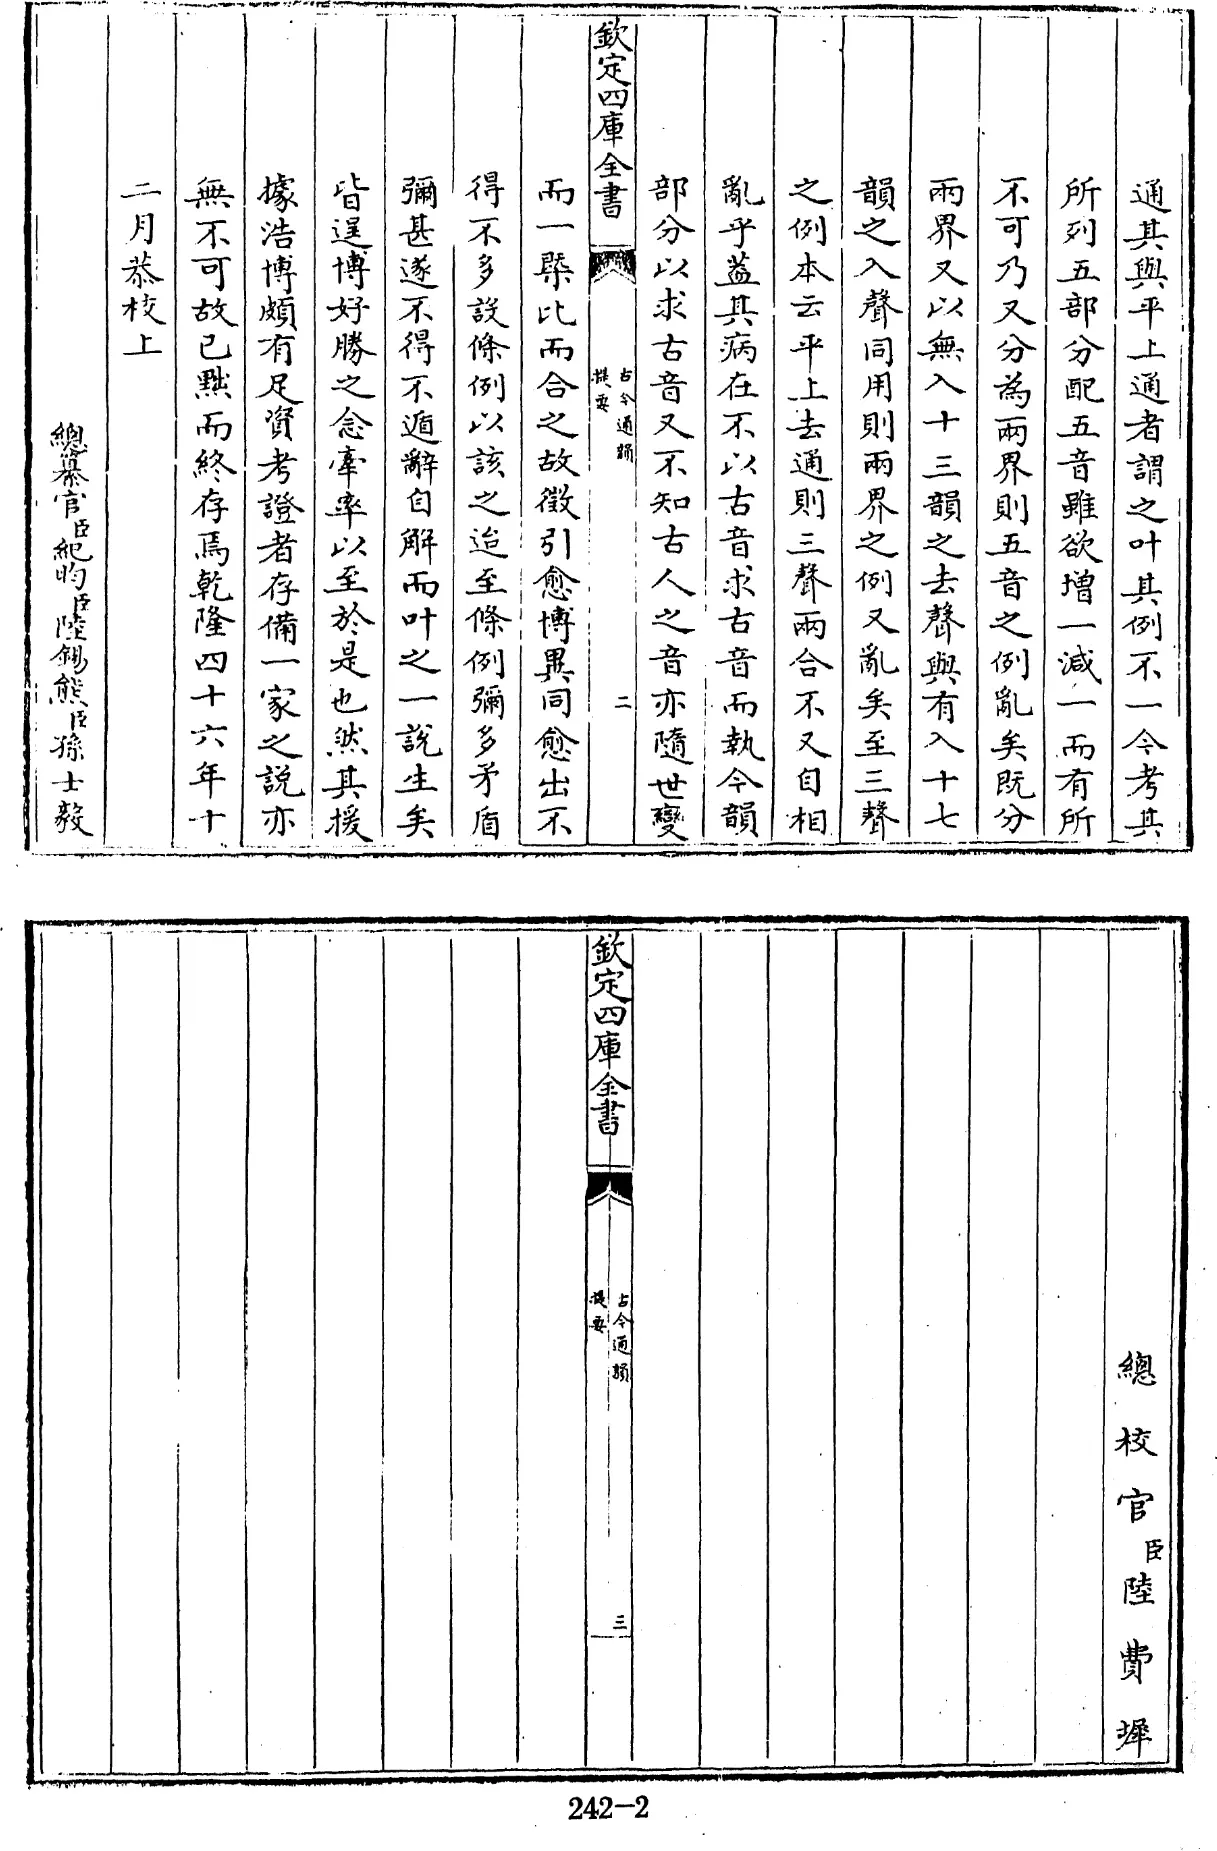 通其與平上通者謂之叶其例不一今考其
所列五部分配五音雖欲増一減一而有所
不可乃又分為兩界則五音之例亂矣既分
兩界又以無入十三韻之去聲與有入十七
韻之入聲同用則兩界之例又亂矣至三聲
之例本云平上去通則三聲兩合不又自相
亂乎葢其病在不以古音求古音而執今韻
部分以求古音又不知古人之音亦隨世變
欽定四庫全書
古今通韻
提要
二
而一槩比而合之故徵引愈博異同愈出不
得不多設條例以該之迨至條例彌多矛盾
彌甚遂不得不遁辭自解而叶之一說生矣
皆逞博好勝之念牽率以至於是也然其援
據浩博頗有足資考證者存備一家之說亦
無不可故已黜而終存焉乾隆四十六年十
二月恭校上
總纂官臣紀昀臣陸錫熊臣孫士毅
總校官臣陸費墀
欽定四庫全書
古今通韻
提要
三
242-2